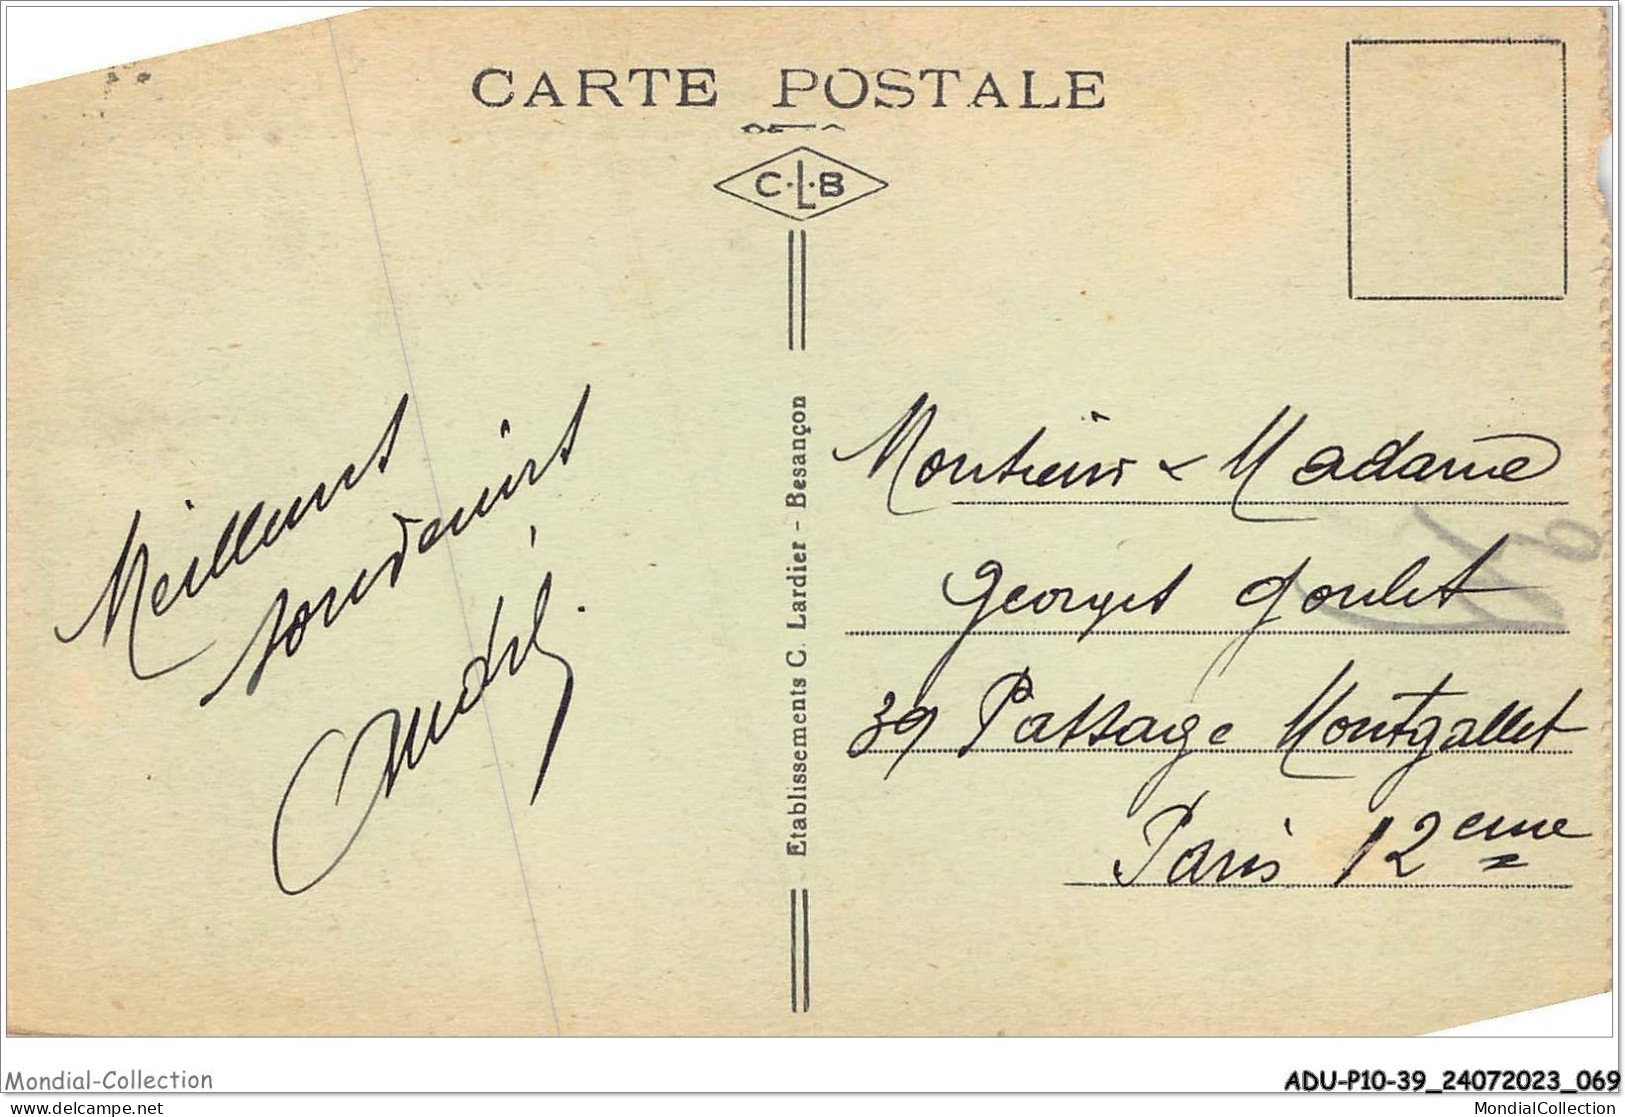 CARTE POSTALE
C·L·B
Meilleurs
souvenirs
André.
Etablissements C. Lardier - Besançon
Monsieur & Madame
Georges Goulet
39 Passage Montgallet
Paris 12eme
Mondial-Collection
ADU-P10-39_24072023_069
delcampe.net
MondialCollection